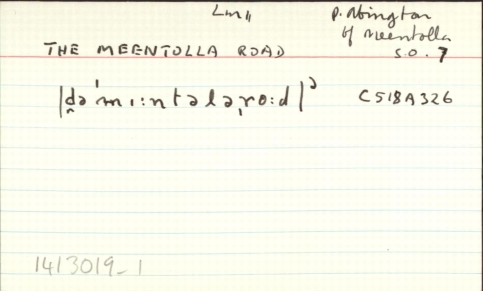 Lm11
P. Abington
of Meentolla
THE MEENTOLLA ROAD
S.O. 7
|d̪əˈmɪ:ntələˌro:d|ᵊ
C518A326
1413019_1